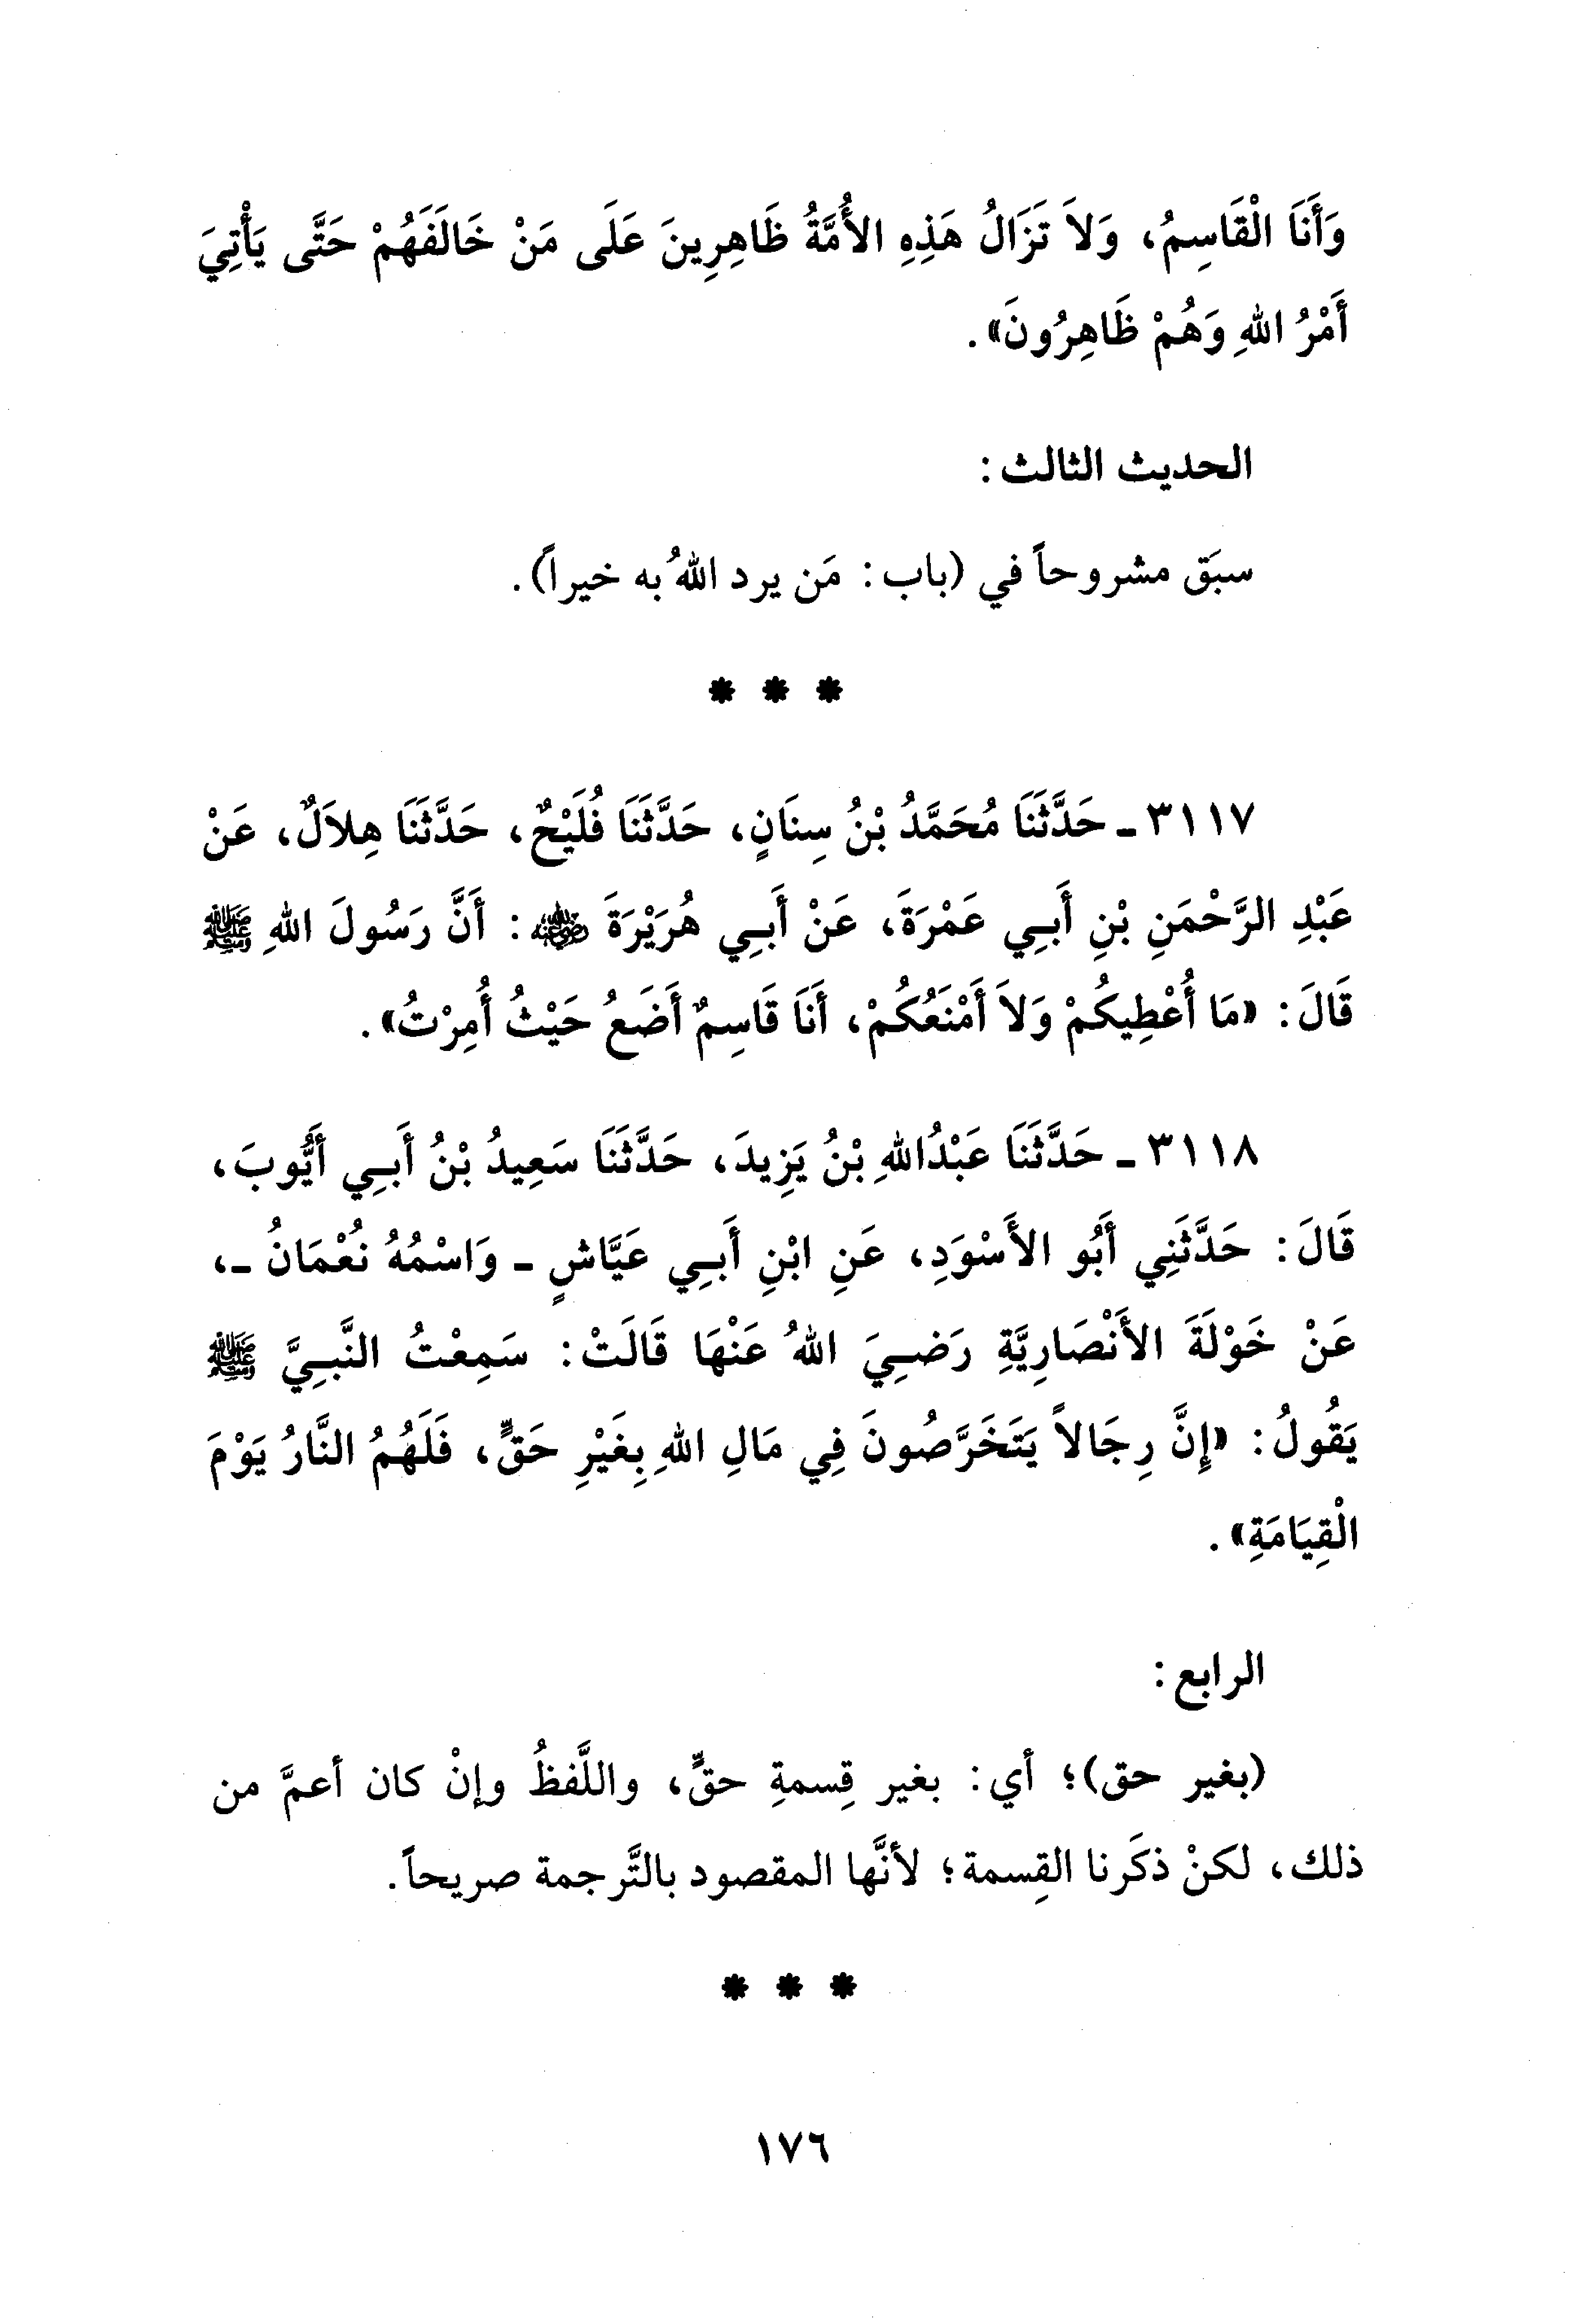 وَأَنَا الْقَاسِمُ، وَلاَ تَزَالُ هَذِهِ الأُمَّةُ ظَاهِرِينَ عَلَى مَنْ خَالَفَهُمْ حَتَّى يَأْتِيَ
أَمْرُ اللهِ وَهُمْ ظَاهِرُونَ».
الحديث الثالث:
سبَق مشروحاً في (باب: مَن يرد اللهُ به خيراً).
* * *
٣١١٧ ـ حَدَّثَنَا مُحَمَّدُ بْنُ سِنَانٍ، حَدَّثَنَا فُلَيْحٌ، حَدَّثَنَا هِلاَلٌ، عَنْ
عَبْدِ الرَّحْمَنِ بْنِ أَبِي عَمْرَةَ، عَنْ أَبِي هُرَيْرَةَ رضي الله عنه: أَنَّ رَسُولَ اللهِ ﷺ
قَالَ: «مَا أُعْطِيكُمْ وَلاَ أَمْنَعُكُمْ، أَنَا قَاسِمٌ أَضَعُ حَيْثُ أُمِرْتُ».
٣١١٨ ـ حَدَّثَنَا عَبْدُاللهِ بْنُ يَزِيدَ، حَدَّثَنَا سَعِيدُ بْنُ أَبِي أَيُّوبَ،
قَالَ: حَدَّثَنِي أَبُو الأَسْوَدِ، عَنِ ابْنِ أَبِي عَيَّاشٍ ـ وَاسْمُهُ نُعْمَانُ ـ،
عَنْ خَوْلَةَ الأَنْصَارِيَّةِ رَضِيَ اللهُ عَنْهَا قَالَتْ: سَمِعْتُ النَّبِيَّ ﷺ
يَقُولُ: «إِنَّ رِجَالاً يَتَخَرَّصُونَ فِي مَالِ اللهِ بِغَيْرِ حَقٍّ، فَلَهُمُ النَّارُ يَوْمَ
الْقِيَامَةِ».
الرابع:
(بغير حق)؛ أي: بغير قِسمةِ حقٍّ، واللَّفظُ وإنْ كان أعمَّ من
ذلك، لكنْ ذكَرنا القِسمة؛ لأنَّها المقصود بالتَّرجمة صريحاً.
* * *
١٧٦